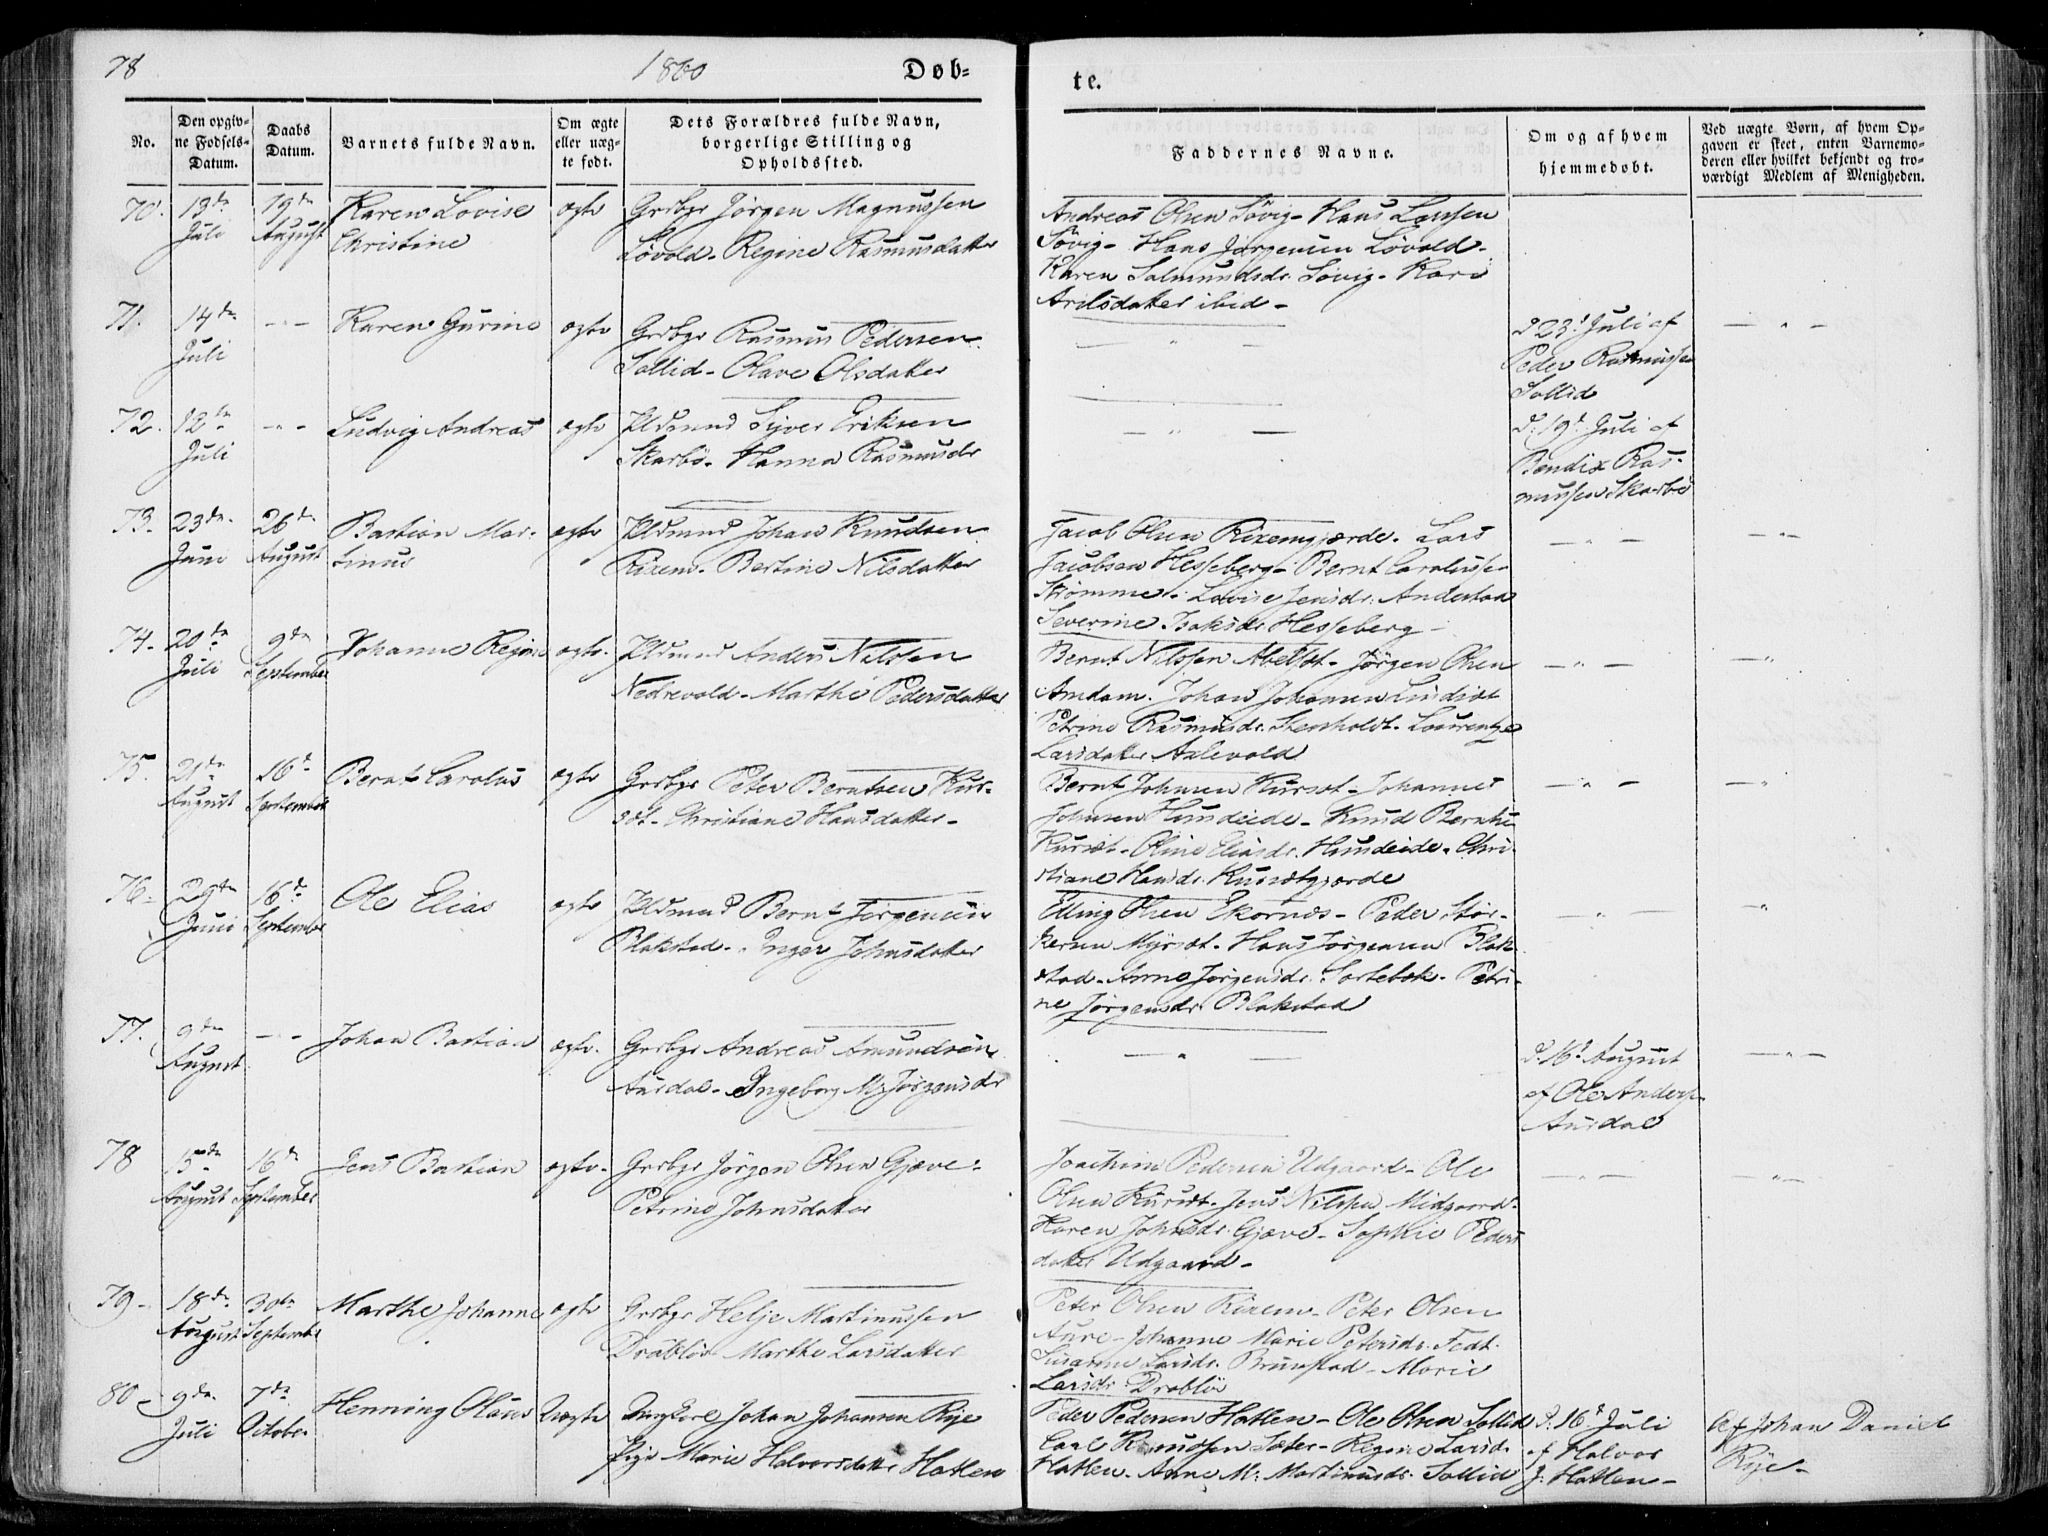 78
1860
Døb=
te.
No.
Den opgiv-
ne Fødsels-
Datum.
Daabs
Datum.
Barnets fulde Navn.
Om ægte
eller uæg-
te født.
Dets Forældres fulde Navn,
borgerlige Stilling og
Opholdssted.
Faddernes Navne.
Om og af hvem
hjemmedøbt.
Ved uægte Børn, af hvem Op-
gaven er skeet, enten Barnemo-
deren eller hvilket bekjendt og tro-
værdigt Medlem af Menigheden.
70.
13de
Juli
19de
August
Karen Lovise
Christine
ægte
Grdbgr Jörgen Magnussen
Lövold- Regine Rasmusdatter
Andreas Olsen Sövig- Hans Larssen
Sövig- Hans Jörgensen Lövold-
Karen Salmundsdr: Sövig- Kari
Arilsdatter ibid-
71.
14de
Juli
-"-
Karen Gurine
ægte
Grdbgr Rasmus Pedersen
Sollid- Olave Olsdatter
- " -
d 23d Juli af
Peder Rasmussen
Sollid
- " -
72.
12te
Juli
-"-
Ludvig Andreas
ægte
Pldsmand Syver Eriksen
Skarbö- Hanna Rasmusdr
- " -
d. 19d Juli af
Bendix Ras-
mussen Skarbö
73.
23de
Juni
26de
August
Bastian Mar-
tinus
ægte
Pldsmand Johan Knudsen
Rixem- Bertine Nilsdatter
Jacob Olsen Rixemgjærde- Lars
Jacobsen Hesseberg- Bernt Carolusse-
Strömme- Lovise Jensdr: Anderstaa
Severine Isaksdr Hesseberg-
- " -
- " -
74.
20de
Juli
9de
September
Johanne Regine
ægte.
Pldsmand Anders Nilssen
Nedrevold- Marthe Pedersdatter
Bernt Nilssen Abelset- Jörgen Olsen
Amdam. Johan Johansen Lindset
Petrine Rasmusdr: Stenholdt- Laurentze
Larsdatter Aslevold
- " -
- "
75.
21de
August
16d
September
Bernt Carolus
ægte
Grdbgr Peter Berntsen Kur-
set- Christiane Hansdatter-
Bernt Johnsen Kurset- Johannes
Johnsen Hundeide- Knud Berntse
Kurset- Oline Eliasdr. Hundeide- Chri-
stiane Hansdr Kursetgjærde
- " -
- "
76-
29de
Juni
16d
September
Ole Elias
ægte
Pldsmand Bernt Jörgensen
Blakstad- Inger Johnsdatter
Elling Olsen Ekornes- Peder Stor-
kersen Myrset- Hans Jörgensen Blak-
stad- Anne Jörgensdr: Sortebek- Petri-
ne Jörgensdr: Blakstad
- " -
- "
77.
9de
August
-"-
Johan Bastian
ægte.
Grdbgr Andreas Amundsen
Aursdal- Ingeborg M: Jörgensdr
- " -
d. 16d August
af Ole Anders-
Aursdal
- " -
78
15de
August
16de
September
Jens Bastian
ægte-
Grdbgr Jörgen Olsen Gjæve-
Petrine Johnsdatter
Joachim Pedersen Udgaard- Ole
Olsen Kurset- Jens Nilssen Midgaard-
Karen Johnsdr: Gjæve- Sophie Peders
datter Udgaard-
- " -
- " -
79-
18de
August
30de
September
Marthe Johanne
ægte
Grdbgr Helje Martinussen
Dröblös- Marthe Larsdatter
Peter Olsen Rixem- Peter Olsen
Aure- Johanne Marie Petersdr. Tedt.
Susanne Larsdr. Brunstad- Marie
Larsdr: Dröblös
80-
9de
Juli
7de
October
Henning Olaus
Uægte
Ungkarl Johan Johansen Rÿe
Pige Marie Halvorsdatter Hatlen
Peder Pedersen Hatlen- Ole Olsen Sollid
Carl Knudsen Sæter- Regine Larsd-
Hatlen- Anne M: Martinusdr: Sollid
d. 16d Juli
af Halvor
J: Hatlen-
Af Johan Daniel
Rÿe-